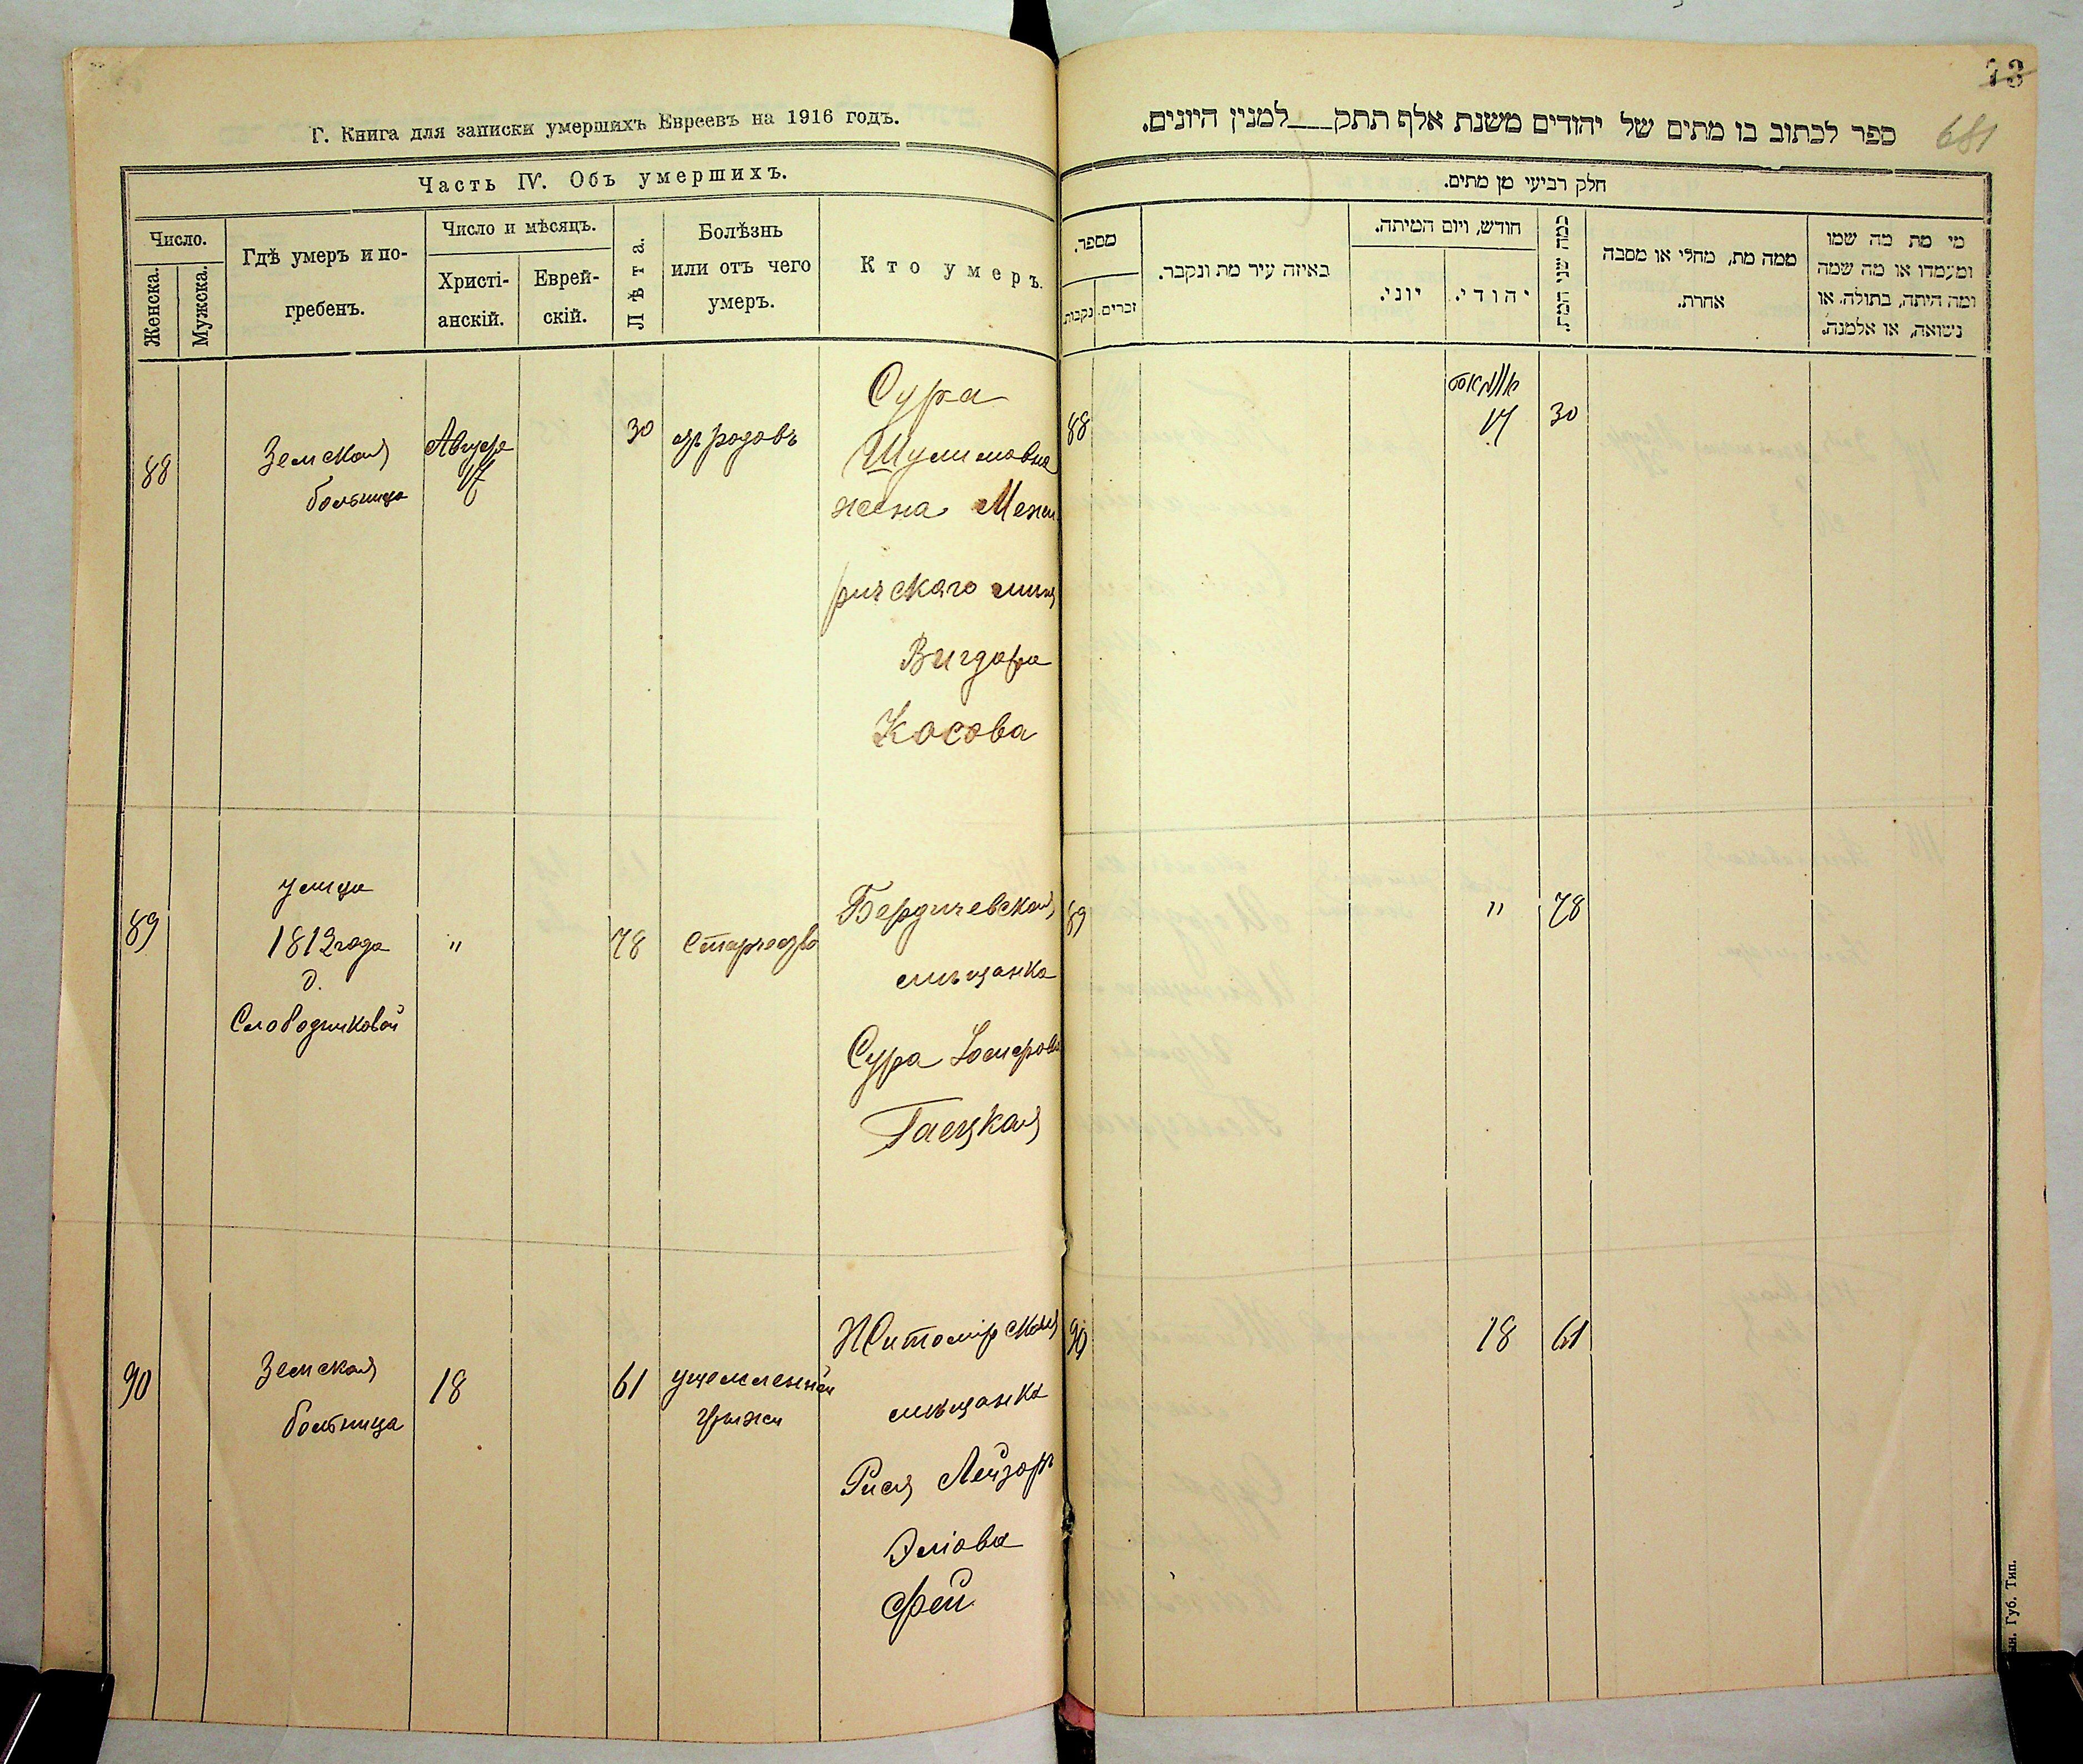 Г. Книга для записки умершихъ Евреевъ на 1916 годъ.
Часть IV. Объ умершихъ.
Число.
Женска.
Мужска.
Гдѣ умеръ и по-
гребенъ.
Число и мѣсяцъ.
Христі-
анскій.
Еврей-
скій.
Лѣта.
Болѣзнь
или отъ чего
умеръ.
Кто умеръ.
88
Земская
больница
Августа
17
30
родовъ
Сура
Шулимовна
жена Межи
ричскаго мѣщ
Вигдора
Косова
89
улица
1812 года
д.
Слободниковой
"
78
Старчество
Бердичевская
мѣщанка
Сура
Гаецкая
90
Земская
больница
18
61
ущемленной
грыжи
Житомірская
мѣщанка
Рися Лейзор
Эліова
Фей
73
681
ספר לכתוב בו מתים של יהודים משנת אלף תתק___למנין היונים.
חלק רביעי מן מתים.
מספר.
נקבות
זכרים.
באיזה עיר מת ונקבר.
חודש, ויום המיתה.
יוני.
יהודי.
כמה שני המת.
ממה מת, מחלי או מסבה
אחרת.
מי מת מה שמו
ומעמדו או מה שמה
ומה היתה, בתולה, או
נשואה, או אלמנה.
88
17
30
89
"
78
90
18
61
Губ. Тип.